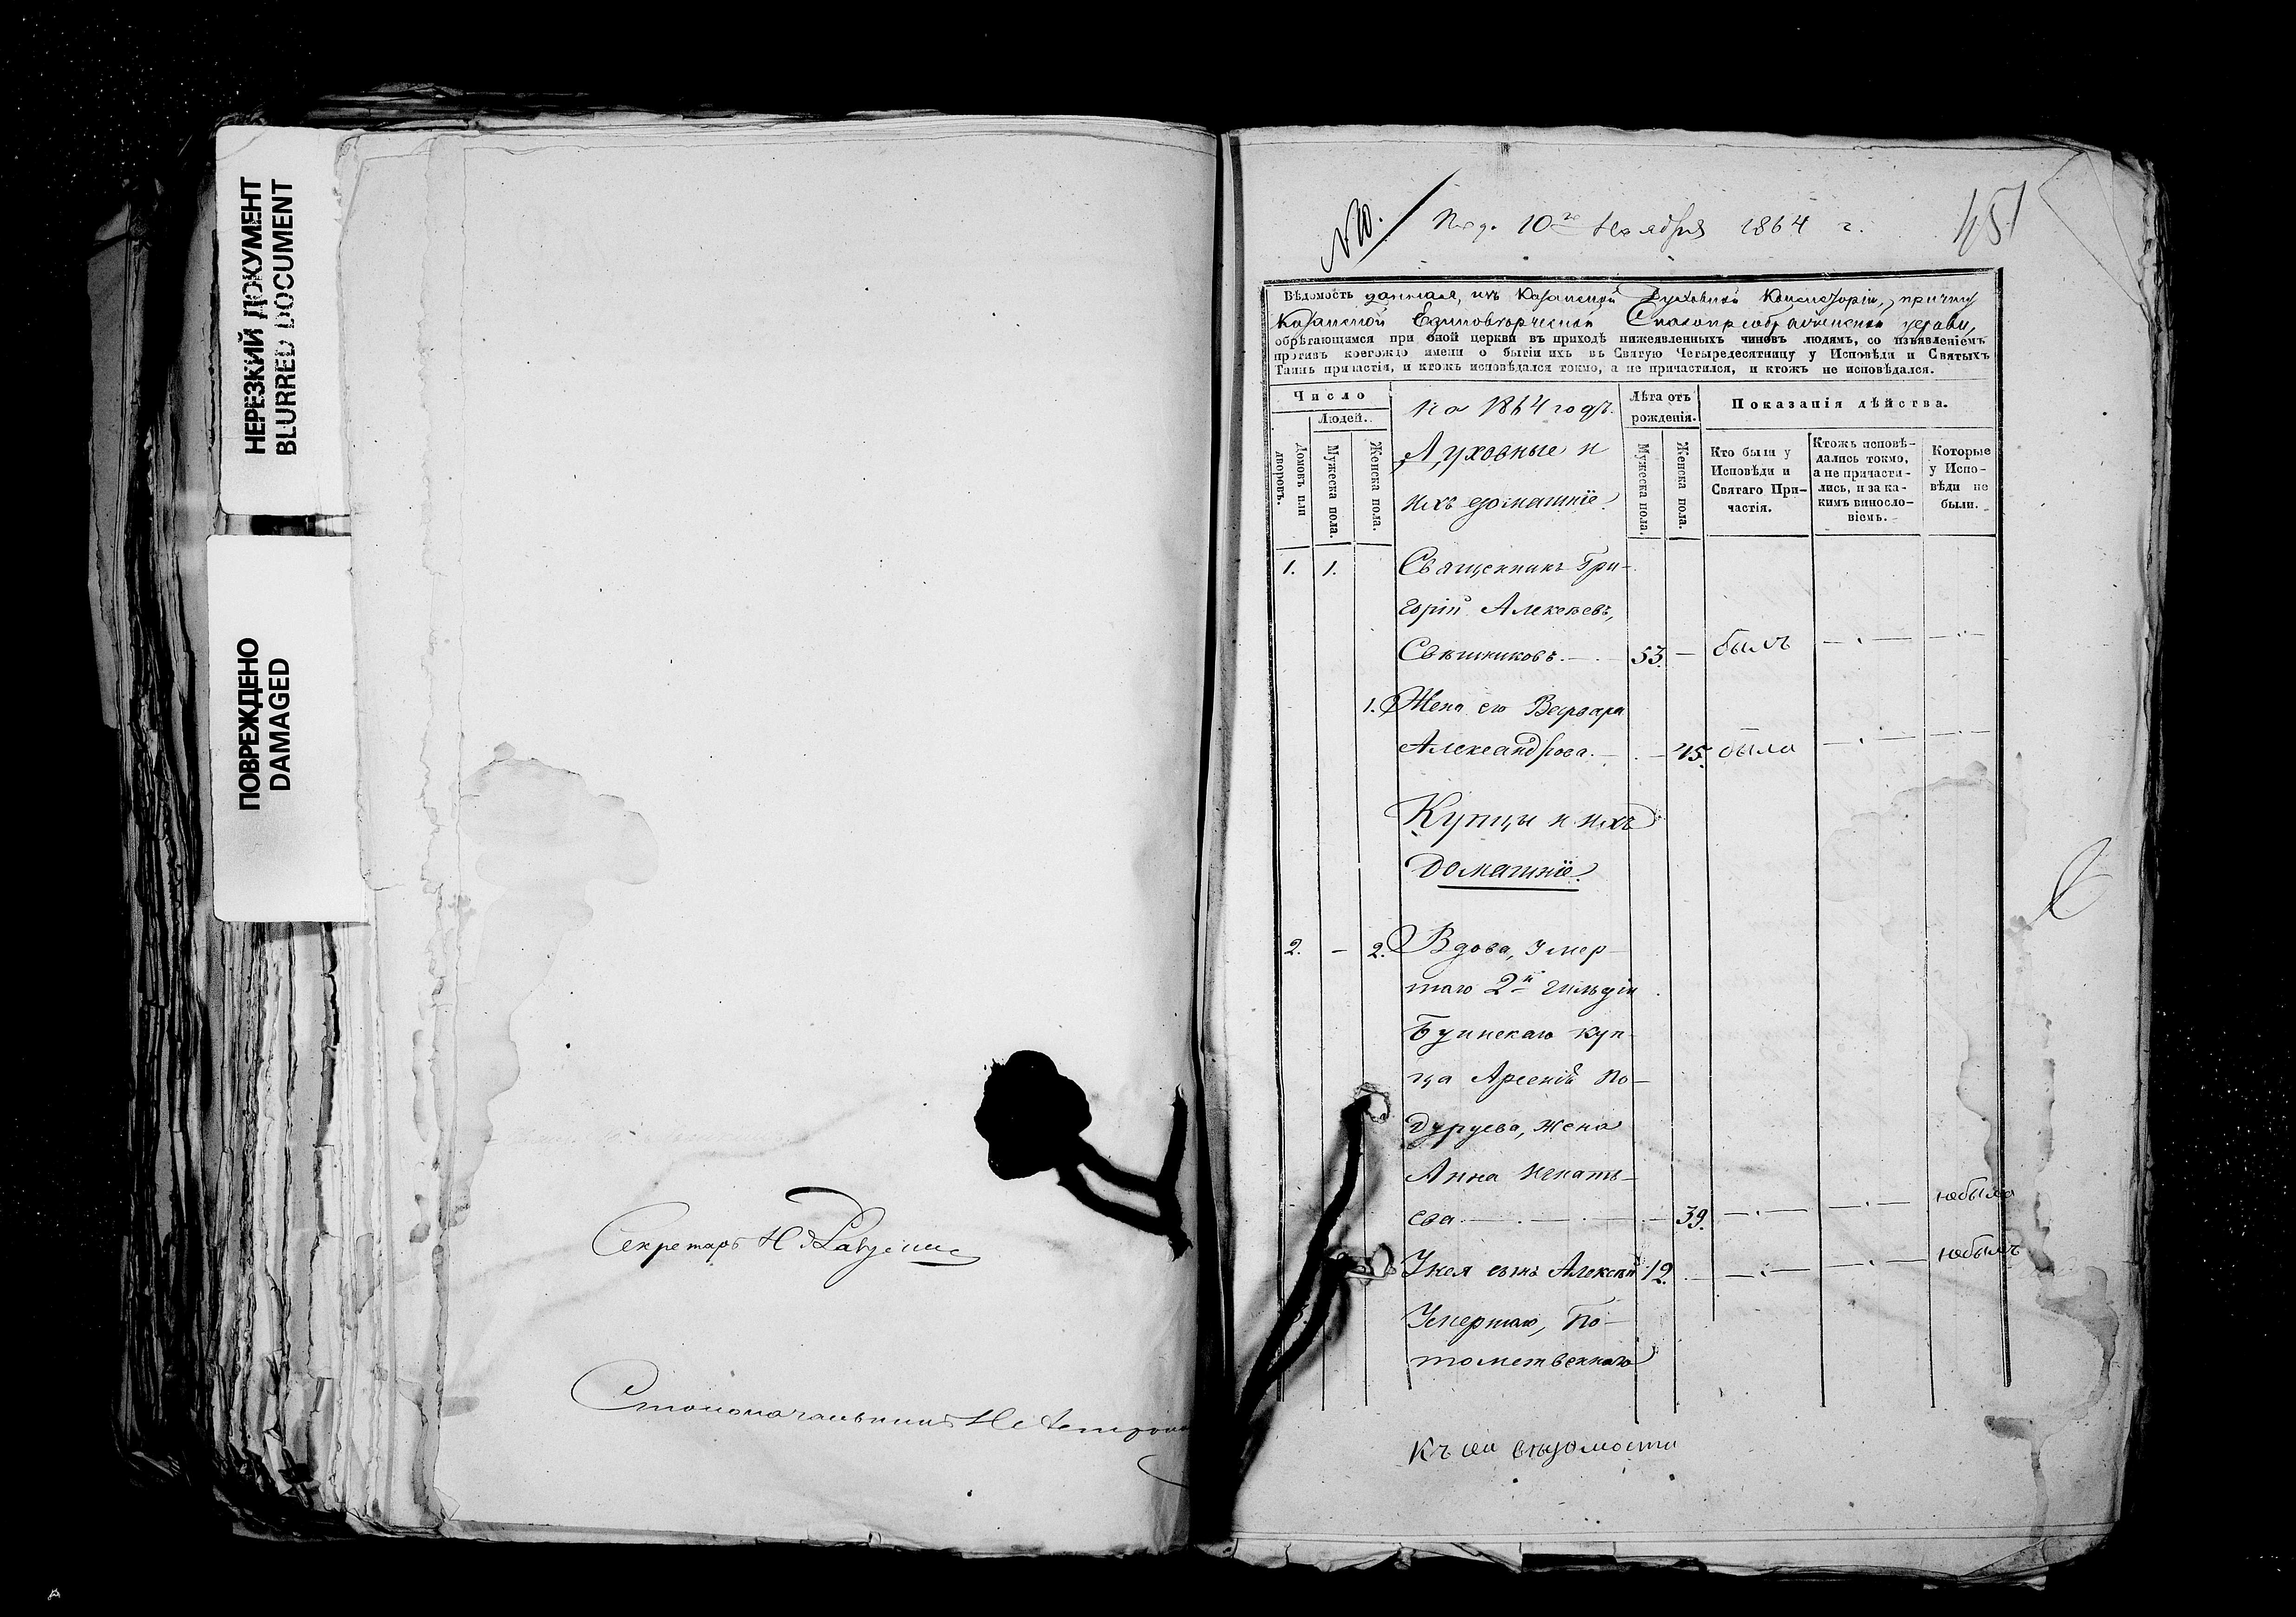 НЕРЕЗКИЙ ДОКУМЕНТ
BLURRED DOCUMENT
ПОВРЕЖДЕНО
DAMAGED
Секретарь Н
Столоначальникъ
№ 10.
Под. 10го Ноября 1864 г.
451
Вѣдомость данная, изъ Казанской Духовной Консисторіи, причту
Казанской Единовѣрческой Спасопреображенской церкви,
обрѣтающимся при оной церкви въ приходѣ нижеявленныхъ чиновъ людямъ, со изъявленіемъ
противъ коегождо имени о бытіи ихъ въ Святую Четыредесятницу у Исповѣди и Святыхъ
Таинъ причастія, и ктожъ исповѣдался токмо, а не причастился, и ктожъ не исповѣдался.
Число
Людей.
Домовъ или дворовъ.
Мужеска пола.
Женска пола.
На 1864 годъ.
Духовные и
ихъ домашніе.
Лѣта отъ рожденія.
Мужеска пола.
Женска пола.
Показанія дѣйства.
Кто были у Исповѣди и Святаго При-
частія.
Ктожъ исповѣ-
дались токмо,
а не причасти-
лись, и за ка-
кимъ винослo-
віемъ.
Которые
у Испо-
вѣди не
были.
1. 1. Священникъ Гри-
горій Алексѣевъ,
Свѣшниковъ. — 53. — былъ — . — — . —
1. Жена его Варвара
Александрова. — . — 45. была — . — — . —
Купцы и ихъ
домашніе.
2. — 2. Вдова, умер-
шаго 2й гильдіи
Буинскаго куп-
ца Арсенія По-
дуруева, жена
Анна Игнать-
ева. — . — . — 39. — . — — . — небыла
У нея сынъ Алексѣй 12. — . — — . — небылъ
3. Умершаго, По-
томственнаго
Къ сей вѣдомости